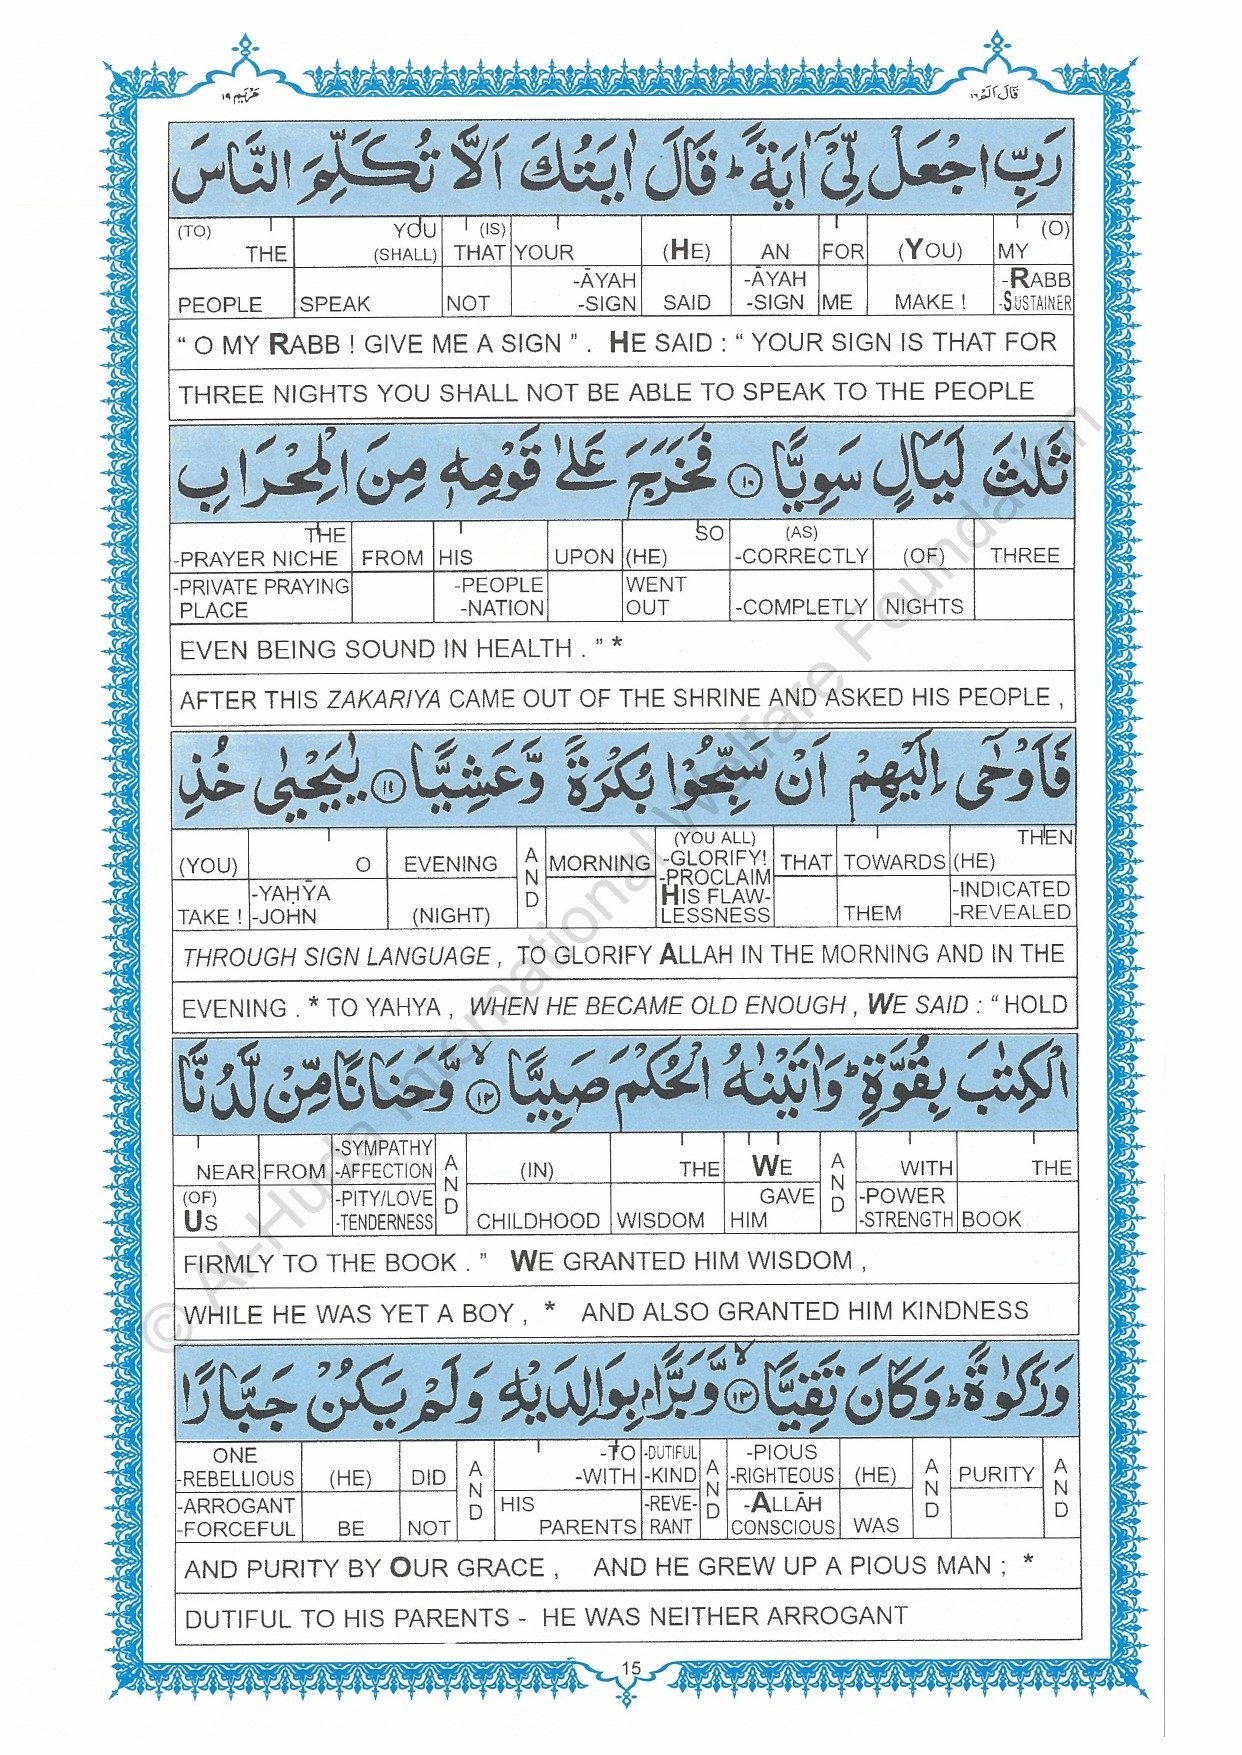 مَرْيَم ١٩
قَالَ اَلَمْ ١٦
رَبِّ اجْعَلْ لِّيْٓ اٰيَةً ؕ قَالَ اٰيَتُكَ اَلَّا تُكَلِّمَ النَّاسَ
(TO) THE YOU (SHALL) (IS) THAT YOUR (HE) AN FOR (YOU) (O) MY
PEOPLE SPEAK NOT -ĀYAH -SIGN SAID -ĀYAH -SIGN ME MAKE ! -RABB -SUSTAINER
“ O MY RABB ! GIVE ME A SIGN ” . HE SAID : “ YOUR SIGN IS THAT FOR
THREE NIGHTS YOU SHALL NOT BE ABLE TO SPEAK TO THE PEOPLE
ثَلٰثَ لَيَالٍ سَوِيًّا ١٠ فَخَرَجَ عَلٰى قَوْمِهٖ مِنَ الْمِحْرَابِ
THE -PRAYER NICHE FROM HIS UPON SO (HE) (AS) -CORRECTLY (OF) THREE
-PRIVATE PRAYING PLACE -PEOPLE -NATION WENT OUT -COMPLETLY NIGHTS
EVEN BEING SOUND IN HEALTH . ” *
AFTER THIS ZAKARIYA CAME OUT OF THE SHRINE AND ASKED HIS PEOPLE ,
فَاَوْحٰٓى اِلَيْهِمْ اَنْ سَبِّحُوْا بُكْرَةً وَّعَشِيًّا ١١ يٰيَحْيٰى خُذِ
(YOU) O EVENING AND MORNING (YOU ALL) -GLORIFY! -PROCLAIM HIS FLAW- LESSNESS THAT TOWARDS THEN (HE)
TAKE ! -YAḤYĀ -JOHN (NIGHT) THEM -INDICATED -REVEALED
THROUGH SIGN LANGUAGE , TO GLORIFY ALLAH IN THE MORNING AND IN THE
EVENING . * TO YAHYA , WHEN HE BECAME OLD ENOUGH , WE SAID : “ HOLD
الْكِتٰبَ بِقُوَّةٍ ؕ وَاٰتَيْنٰهُ الْحُكْمَ صَبِيًّا ١٢ۙ وَّحَنَانًا مِّنْ لَّدُنَّا
NEAR FROM -SYMPATHY -AFFECTION AND (IN) THE WE AND WITH THE
(OF) US -PITY/LOVE -TENDERNESS CHILDHOOD WISDOM GAVE HIM -POWER -STRENGTH BOOK
FIRMLY TO THE BOOK . ” WE GRANTED HIM WISDOM ,
WHILE HE WAS YET A BOY , * AND ALSO GRANTED HIM KINDNESS
وَزَكٰوةً ؕ وَكَانَ تَقِيًّا ١٣ۙ وَّبَرًّاۢ بِوَالِدَيْهِ وَلَمْ يَكُنْ جَبَّارًا
ONE -REBELLIOUS (HE) DID AND -TO -WITH -DUTIFUL -KIND AND -PIOUS -RIGHTEOUS (HE) AND PURITY AND
-ARROGANT -FORCEFUL BE NOT HIS PARENTS -REVE- RANT -ALLĀH CONSCIOUS WAS
AND PURITY BY OUR GRACE , AND HE GREW UP A PIOUS MAN ; *
DUTIFUL TO HIS PARENTS - HE WAS NEITHER ARROGANT
15
© Al-Huda International Welfare Foundation